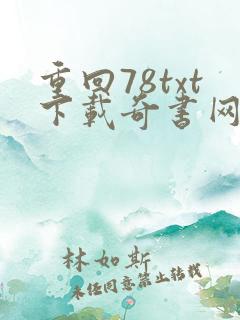 重回78txt
下载奇书网
林如斯
未经同意禁止转载